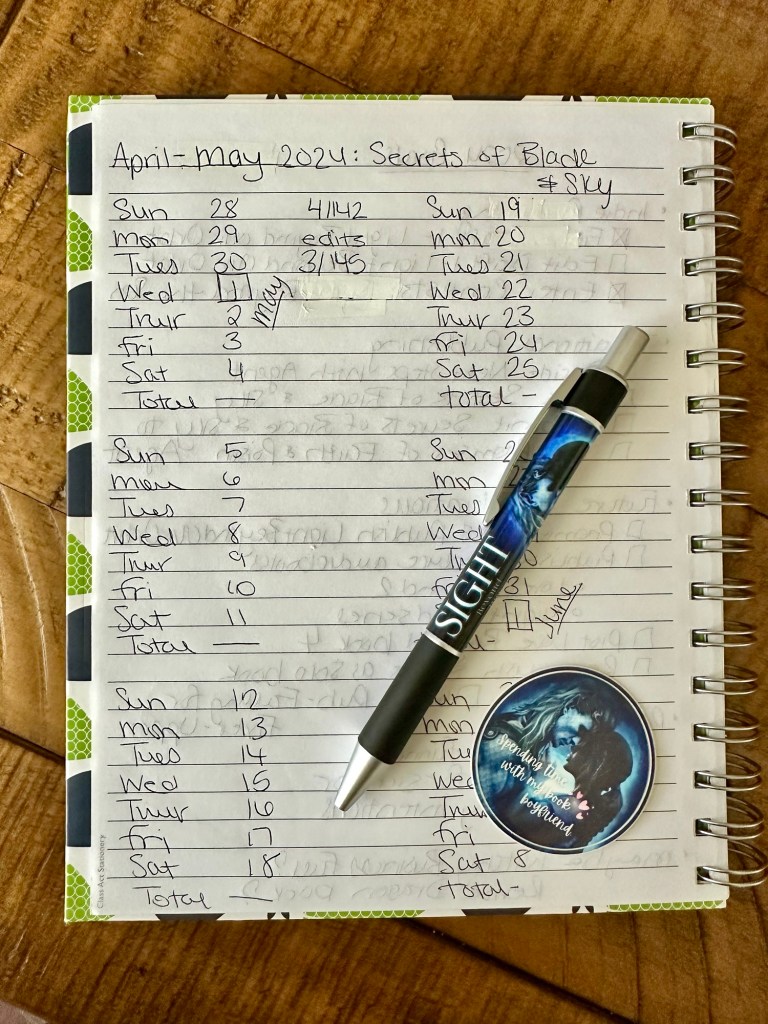 April-May 2024: Secrets of Blade
& Sky
Sun 28 4/142
Mon 29 edits
Tues 30 3/145
Wed 1 May
Thur 2
Fri 3
Sat 4
Total —
Sun 5
Mon 6
Tues 7
Wed 8
Thur 9
Fri 10
Sat 11
Total —
Sun 12
Mon 13
Tues 14
Wed 15
Thur 16
Fri 17
Sat 18
Total —
Sun 19
Mon 20
Tues 21
Wed 22
Thur 23
Fri 24
Sat 25
Total -
Sun
Mon
Tues
Wed
31
1 June
Mon
Fri
Sat 8
Total-
SIGHT
Spending time
with my book
boyfriend
Class Act Stationery